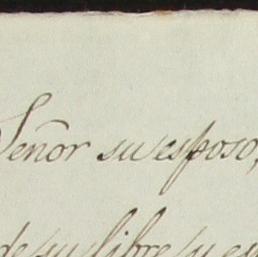 Señor su esposo,
de su libre su es